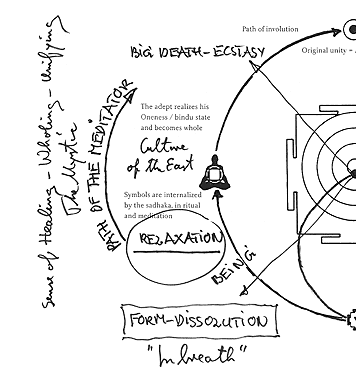 Path of involution
Original unity –
BIG DEATH – ECSTASY
Sense of Healing – Wholing – Unifying
The Mystic
PATH OF THE MEDITATOR
The adept realizes his
Oneness / bindu state
and becomes whole
Culture
of the East
Symbols are internalized
by the sadhaka, in ritual
and meditation
RELAXATION
BEING
FORM-DISSOLUTION
"Inbreath"